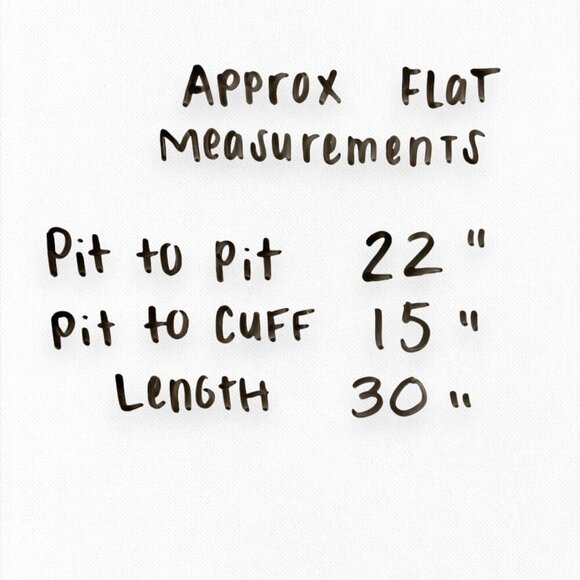 Approx Flat
Measurements
Pit to pit 22"
Pit to Cuff 15"
Length 30"